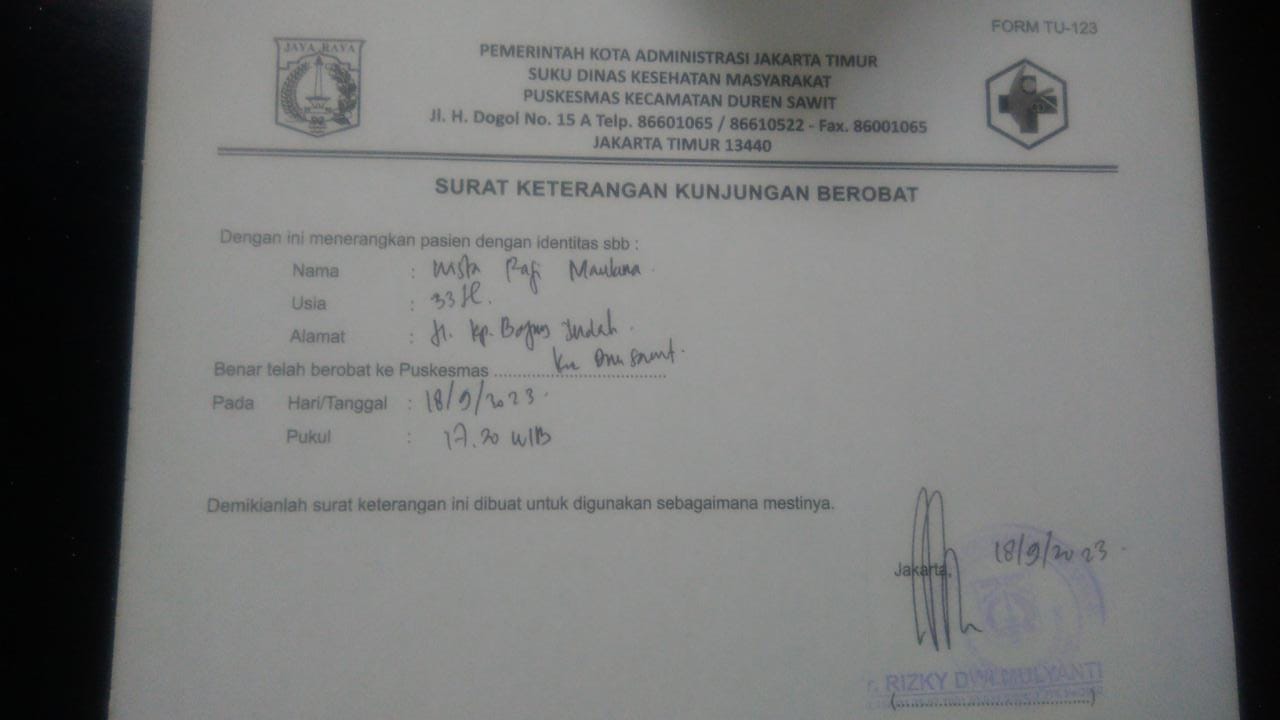 FORM TU-123
JAYA RAYA
PEMERINTAH KOTA ADMINISTRASI JAKARTA TIMUR
SUKU DINAS KESEHATAN MASYARAKAT
PUSKESMAS KECAMATAN DUREN SAWIT
Jl. H. Dogol No. 15 A Telp. 86601065 / 86610522 - Fax. 86001065
JAKARTA TIMUR 13440
SURAT KETERANGAN KUNJUNGAN BEROBAT
Dengan ini menerangkan pasien dengan identitas sbb :
Nama : Maulana
Usia : 33 th.
Alamat : Jl. Kp. Indah.
Benar telah berobat ke Puskesmas ....................
Pada Hari/Tanggal : 18/9/2023.
Pukul : 17.20 WIB
Demikianlah surat keterangan ini dibuat untuk digunakan sebagaimana mestinya.
Jakarta, 18/9/2023.
RIZKY DWI MULYANTI
(........................................)